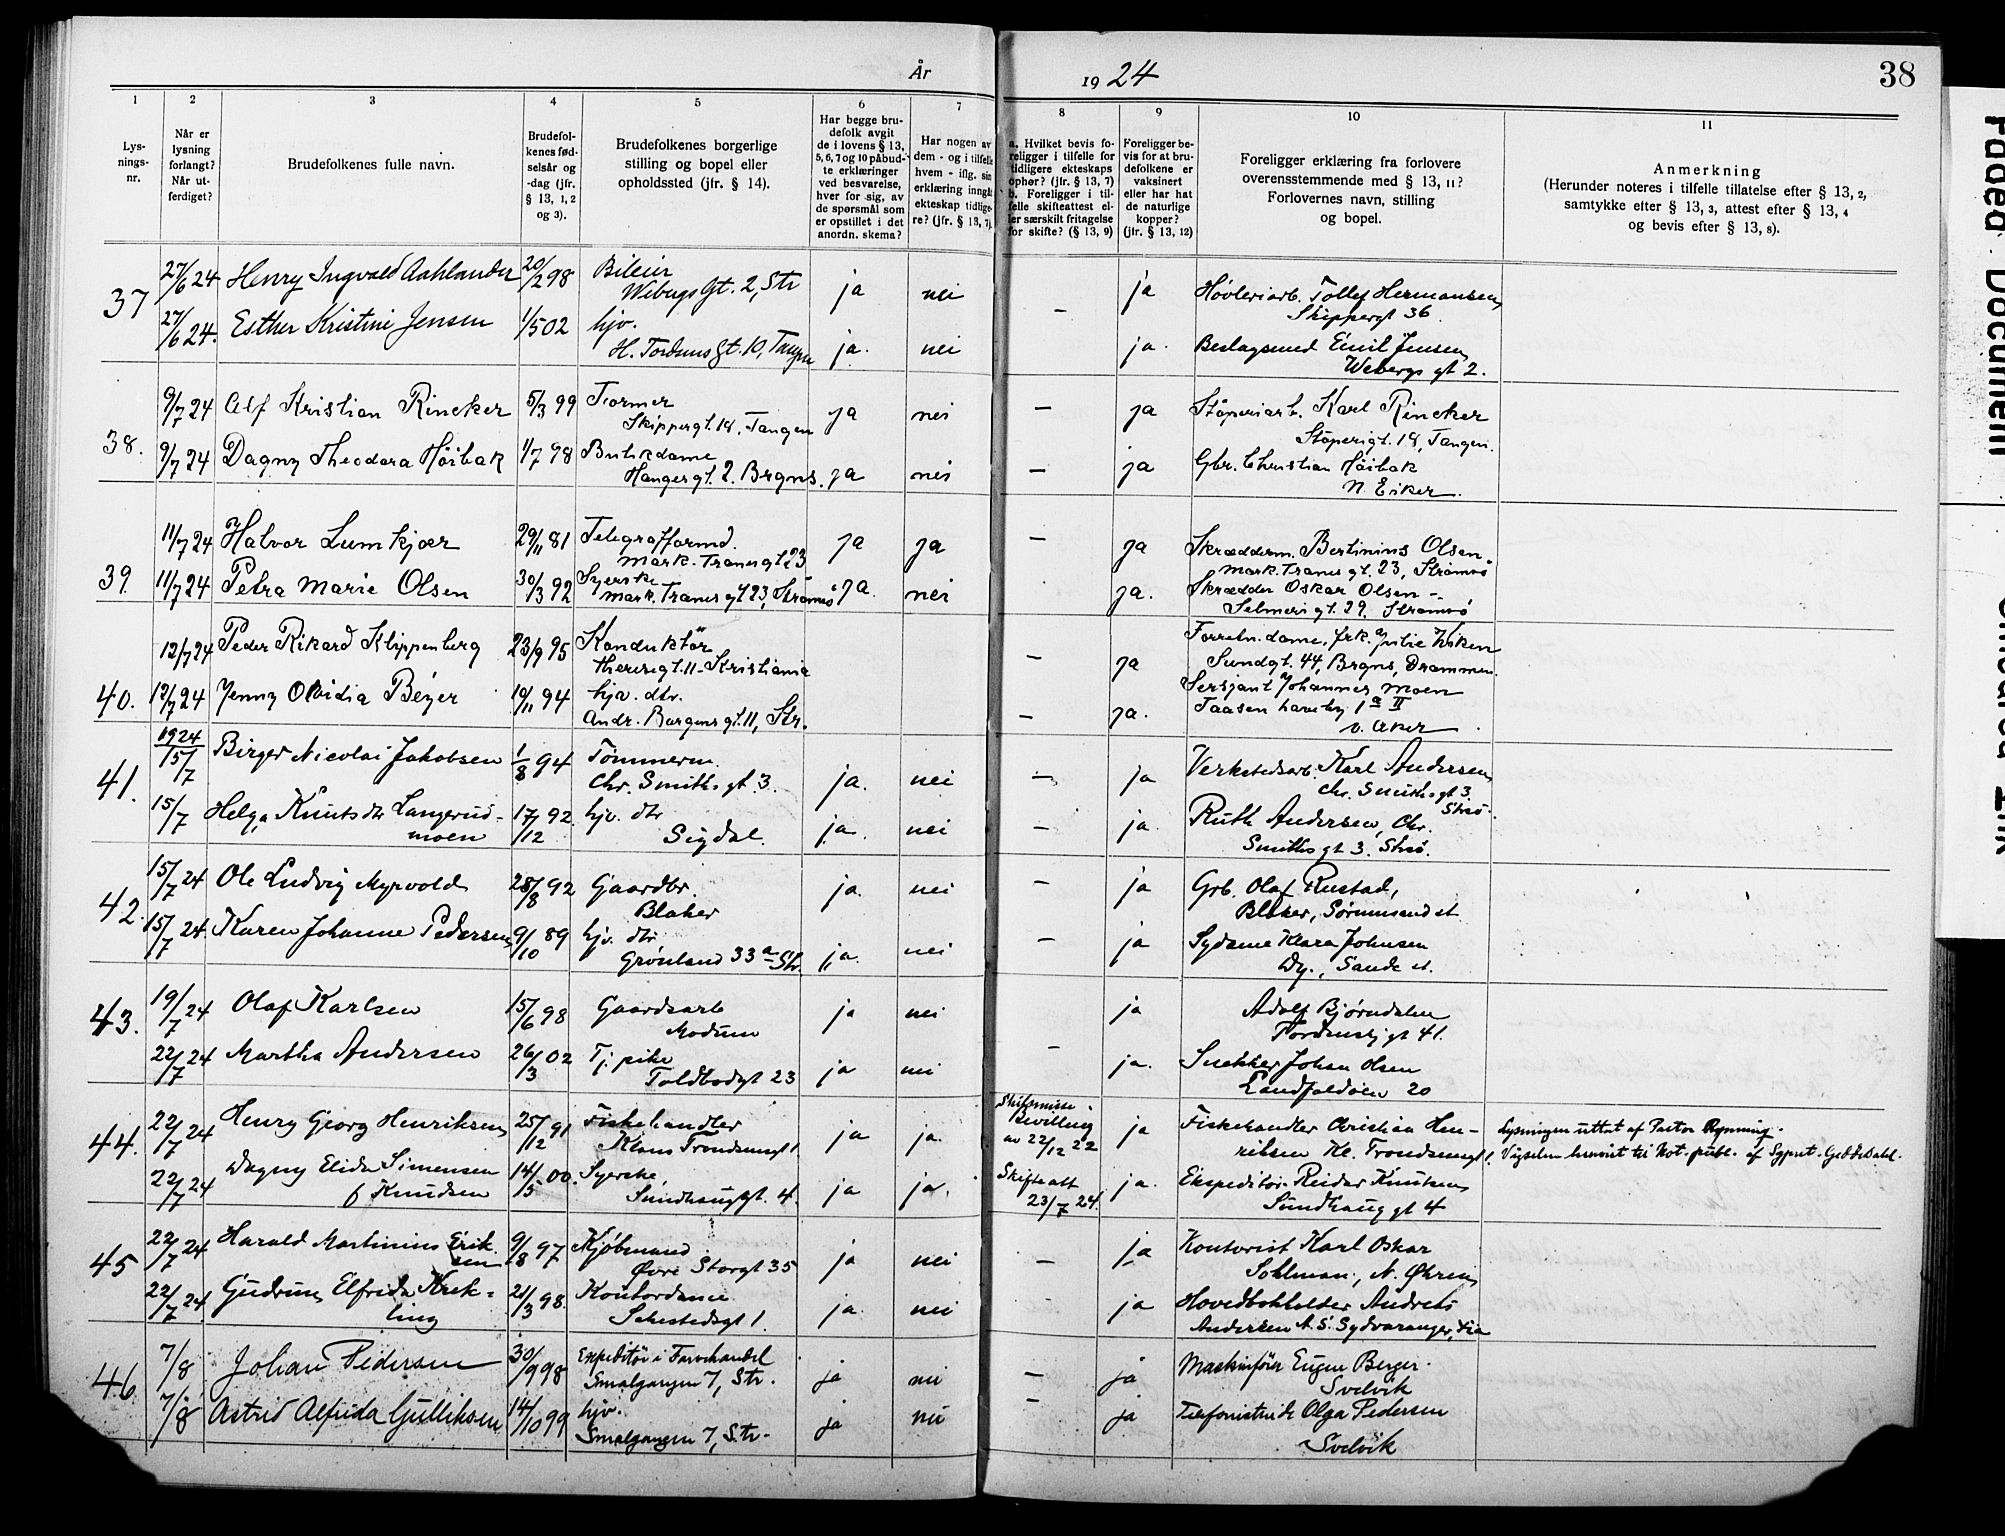 År 1924
38
1 2 3 4 5 6 7 8 9 10 11
Lys-
nings-
nr.
Når er
lysning
forlangt?
Når ut-
ferdiget?
Brudefolkenes fulle navn.
Brudefol-
kenes fød-
selsår og
-dag (jfr.
§ 13, 1, 2
og 3).
Brudefolkenes borgerlige
stilling og bopel eller
opholdssted (jfr. § 14).
Har begge bru-
defolk avgit
de i lovens § 13,
5, 6, 7 og 10 påbud-
te erklæringer
ved besvarelse,
hver for sig, av
de spørsmål som
er opstillet i det
anordn. skema?
Har nogen av
dem - og i tilfelle
hvem - iflg. sin
erklæring inngåt
ekteskap tidlige-
re? (jfr. § 13, 7).
a. Hvilket bevis fo-
religger i tilfelle for
tidligere ekteskaps
ophør? (jfr. § 13, 7)
b. Foreligger i til-
felle skifteattest el-
ler særskilt fritagelse
for skifte? (§ 13, 9)
Foreligger be-
vis for at bru-
defolkene er
vaksinert
eller har hat
de naturlige
kopper?
(jfr. § 13, 12)
Foreligger erklæring fra forlovere
overensstemmende med § 13, 11?
Forlovernes navn, stilling
og bopel.
Anmerkning
(Herunder noteres i tilfelle tillatelse efter § 13, 2,
samtykke efter § 13, 3, attest efter § 13, 4
og bevis efter § 13, 8).
37
27/6 24 Henry Ingvald Aahlander 20/2 98 Bileier
Webergs Gt. 2, Str ja nei – ja Høvleriarb. Tollef Hermansen
Skippergt 36
27/6 24. Esther Kristine Jensen 1/5 02 hjv.
H. Tordensgt. 10, Tangen ja. nei ja. Beslagsmed Emil Jensen
Webergs gt 2.
38.
9/7 24 Alf Kristian Rincker 5/3 99 Formер
Skippergt. 18, Tangen ja nei – ja Støperiarb. Karl Rincker
Støperigt. 18, Tangen.
9/7 24 Dagny Theodora Høibak 1/7 98 Butikdame
Haugergt. 2. Brgns. ja nei – ja Gbr. Christian Høibak
N. Eiker.
39.
11/7 24 Halvor Lumkjær 29/11 81 Telegrafformd.
Mark. Tranes gt 23 ja ja – ja Skrædderm. Bertinius Olsen
Mark. Tranes gt. 23, Strømsø
11/7 24 Petra Marie Olsen 30/3 92 Syerske
Mark. Tranes gt 23, Strømsø ja. nei ja. Skrædder Oskar Olsen –
Selmers gt. 29, Strømsø
40.
12/7 24 Peder Rikard Klippenberg 23/9 95 Konduktør
Theresegt. 11 - Kristiania – ja Forretn. dame, frk. Julie Wiken
Sundgt. 44, Brgns, Drammen.
12/7 24 Jenny Olvidia Beyer 19/11 94 hjv. dtr.
Andr. Borgens gt. 11, Str. – ja. Sersjant Johannes Moen
Taasen haveby 1a II
v. Aker
41.
1924
15/7 Birger Nicolai Jakobsen 1/8 94 Tømmerm.
Chr. Smiths gt 3. ja. nei – ja Verkstedsarb. Karl Andersen
Chr. Smiths gt 3.
Strsø.
15/7 Helga Knutsdtr Langerud-
moen 17/12 92. hjv. dtr
Sigdal. ja. nei – ja. Ruth Andersen, Chr.
Smiths gt 3. Strsø.
42.
15/7 24 Ole Ludvig Myrvold 28/8 92 Gaardbr.
Blaker ja. nei – ja Grb. Olaf Rustad,
Blaker, Sørumsand st
15/7 24. Karen Johanne Pedersen 9/10 89 hjv. dtr
Grønland 33 a Str. ja. nei – ja Sydame Klara Johnsen
Dy., Sande st.
43.
19/7 24 Olaf Karlsen 15/6 98 Gaardsarb
Modum ja nei ja Adolf Bjørndalen
Tordenskj gt 41.
22/7 24 Martha Andersen 26/3 02 Tj. pike
Toldbodgt 23 ja nei – ja. Snekker Johan Olsen
Landfaldøen 20
44.
22/7 24 Henry Georg Henriksen 25/12 91 Fiskehandler
Klaus Trondsensgt 1 ja ja. Skilsmisse-
bevilling
av 22/12 22 ja Fiskehandler Christian Hen-
riksen Kl. Trondsensgt 1. Lysningen uttat af Pastor Rynning.
Vigselen henvist til Not. publ. af Sogneprt. Gjeddedahl.
22/7 24 Dagny Elida Simensen
f Knudsen 14/5 00. Syerske,
Sundhauggt. 4. ja ja. Skifteatt
23/7 24. ja. Ekspeditør Reidar Knutsen
Sundhauggt 4
45
22/7 24 Harald Martinius Erik-
sen 9/8 97 Kjøbmand
Øvre Storgt 35 ja nei – ja Kontorist Karl Oskar
Sohlman, N. Øhren
22/7 24. Gudrun Elfrida Krek-
ling 21/3 98. Kontordame
Schestedsgt 1. ja. nei ja Hovedbokholder Andreas
Andersen A.S. Sydvaranger, Kia
46
7/8 Johan Pedersen 30/9 98 Expeditør i Farvehandel
Smalgangen 7, Str. ja nei – ja Maskinfører Eugen Berger.
Svelvik
7/8 Astrid Alfrida Gulliksen 14/10 99 hjv.
Smalgangen 7, Str. ja nei – ja Telefonistinde Olga Pedersen
Svelvik
Faded Document